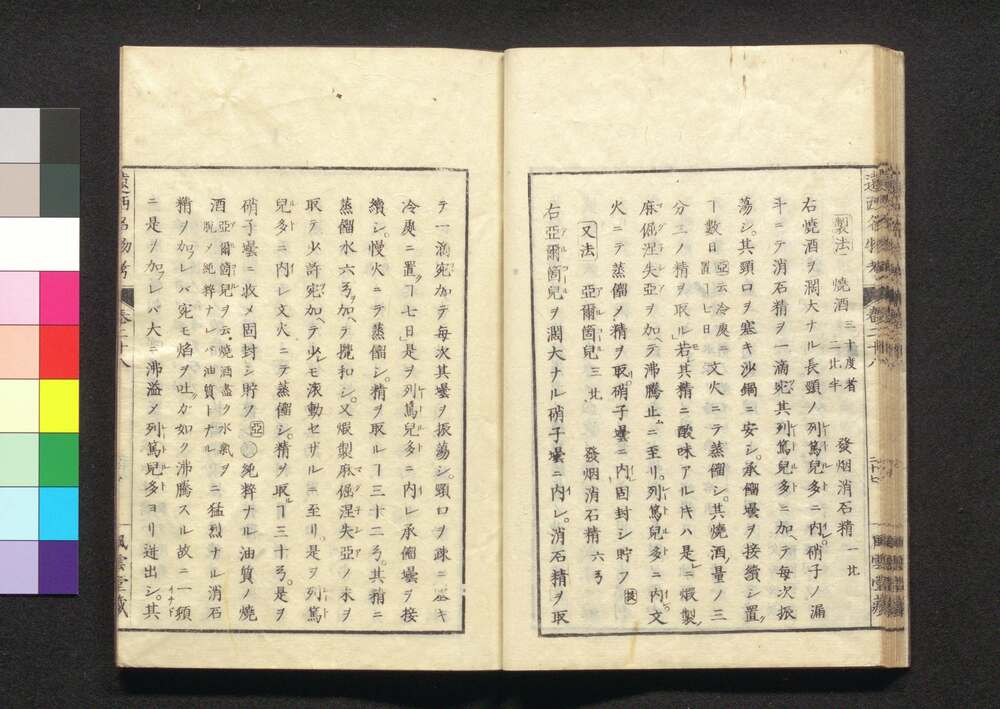 製法 燒酒 三十度者 二比半 發烟消石精 一比
右燒酒ヲ濶大ナル長頸ノ列篤兒多ニ内レ硝子ノ漏
斗ニテ消石精ヲ一滴宛其列篤兒多ニ加ヘテ毎次振
蕩シ其頸口ヲ塞キ沙鍋ニ安シ承餾罍ヲ接續シ置
ヿ數日 亞云冷處ニ置ヿ七日 文火ニテ蒸餾シ其燒酒ノ量ノ三
分二ノ精ヲ取ル若シ其精ニ酸味アル𪜈ハ是ニ煆製
麻倔涅失亞ヲ加ヘテ沸騰止ムニ至リ列篤兒多ニ内レ文
火ニテ蒸餾メ精ヲ取硝子罍ニ内レ固封シ貯フ
又法 亞爾箇兒 三比 發烟消石精 六ヲ
右亞爾箇兒ヲ濶大ナル硝子罍ニ内レ消石精ヲ取
テ一滴宛加テ毎次其罍ヲ振蕩シ頸口ヲ疎ニ塞キ
冷處ニ置ヿ七日是ヲ列篤兒多ニ内レ承餾罍ヲ接
續シ慢火ニテ蒸餾シ精ヲ取ルヿ三十二ヲ其精ニ
蒸餾水六ヲヲ加ヘテ攪和シ又煆製麻倔涅失亞ノ末ヲ
取テ少許宛加ヘテ少シモ液動セザルニ至リ是ヲ列篤
兒多ニ内レ文火ニテ蒸餾シ精ヲ取ルヿ三十ヲ是ヲ
硝子罍ニ收メ固封シ貯フ 亞 純粹ナル油質ノ燒
酒 亞爾箇兒ヲ云燒酒盡ク水氣ヲ脱メ純粹ナレバ油質トナル ニ猛烈ナル消石
精ヲ加フレバ宛モ焰ヲ吐クガ如ク沸騰スル故ニ一頓
ニ是ヲ加フレバ大ニ沸溢メ列篤兒多ヨリ迸出シ其
遠西名物考 卷二十八
風雲堂藏